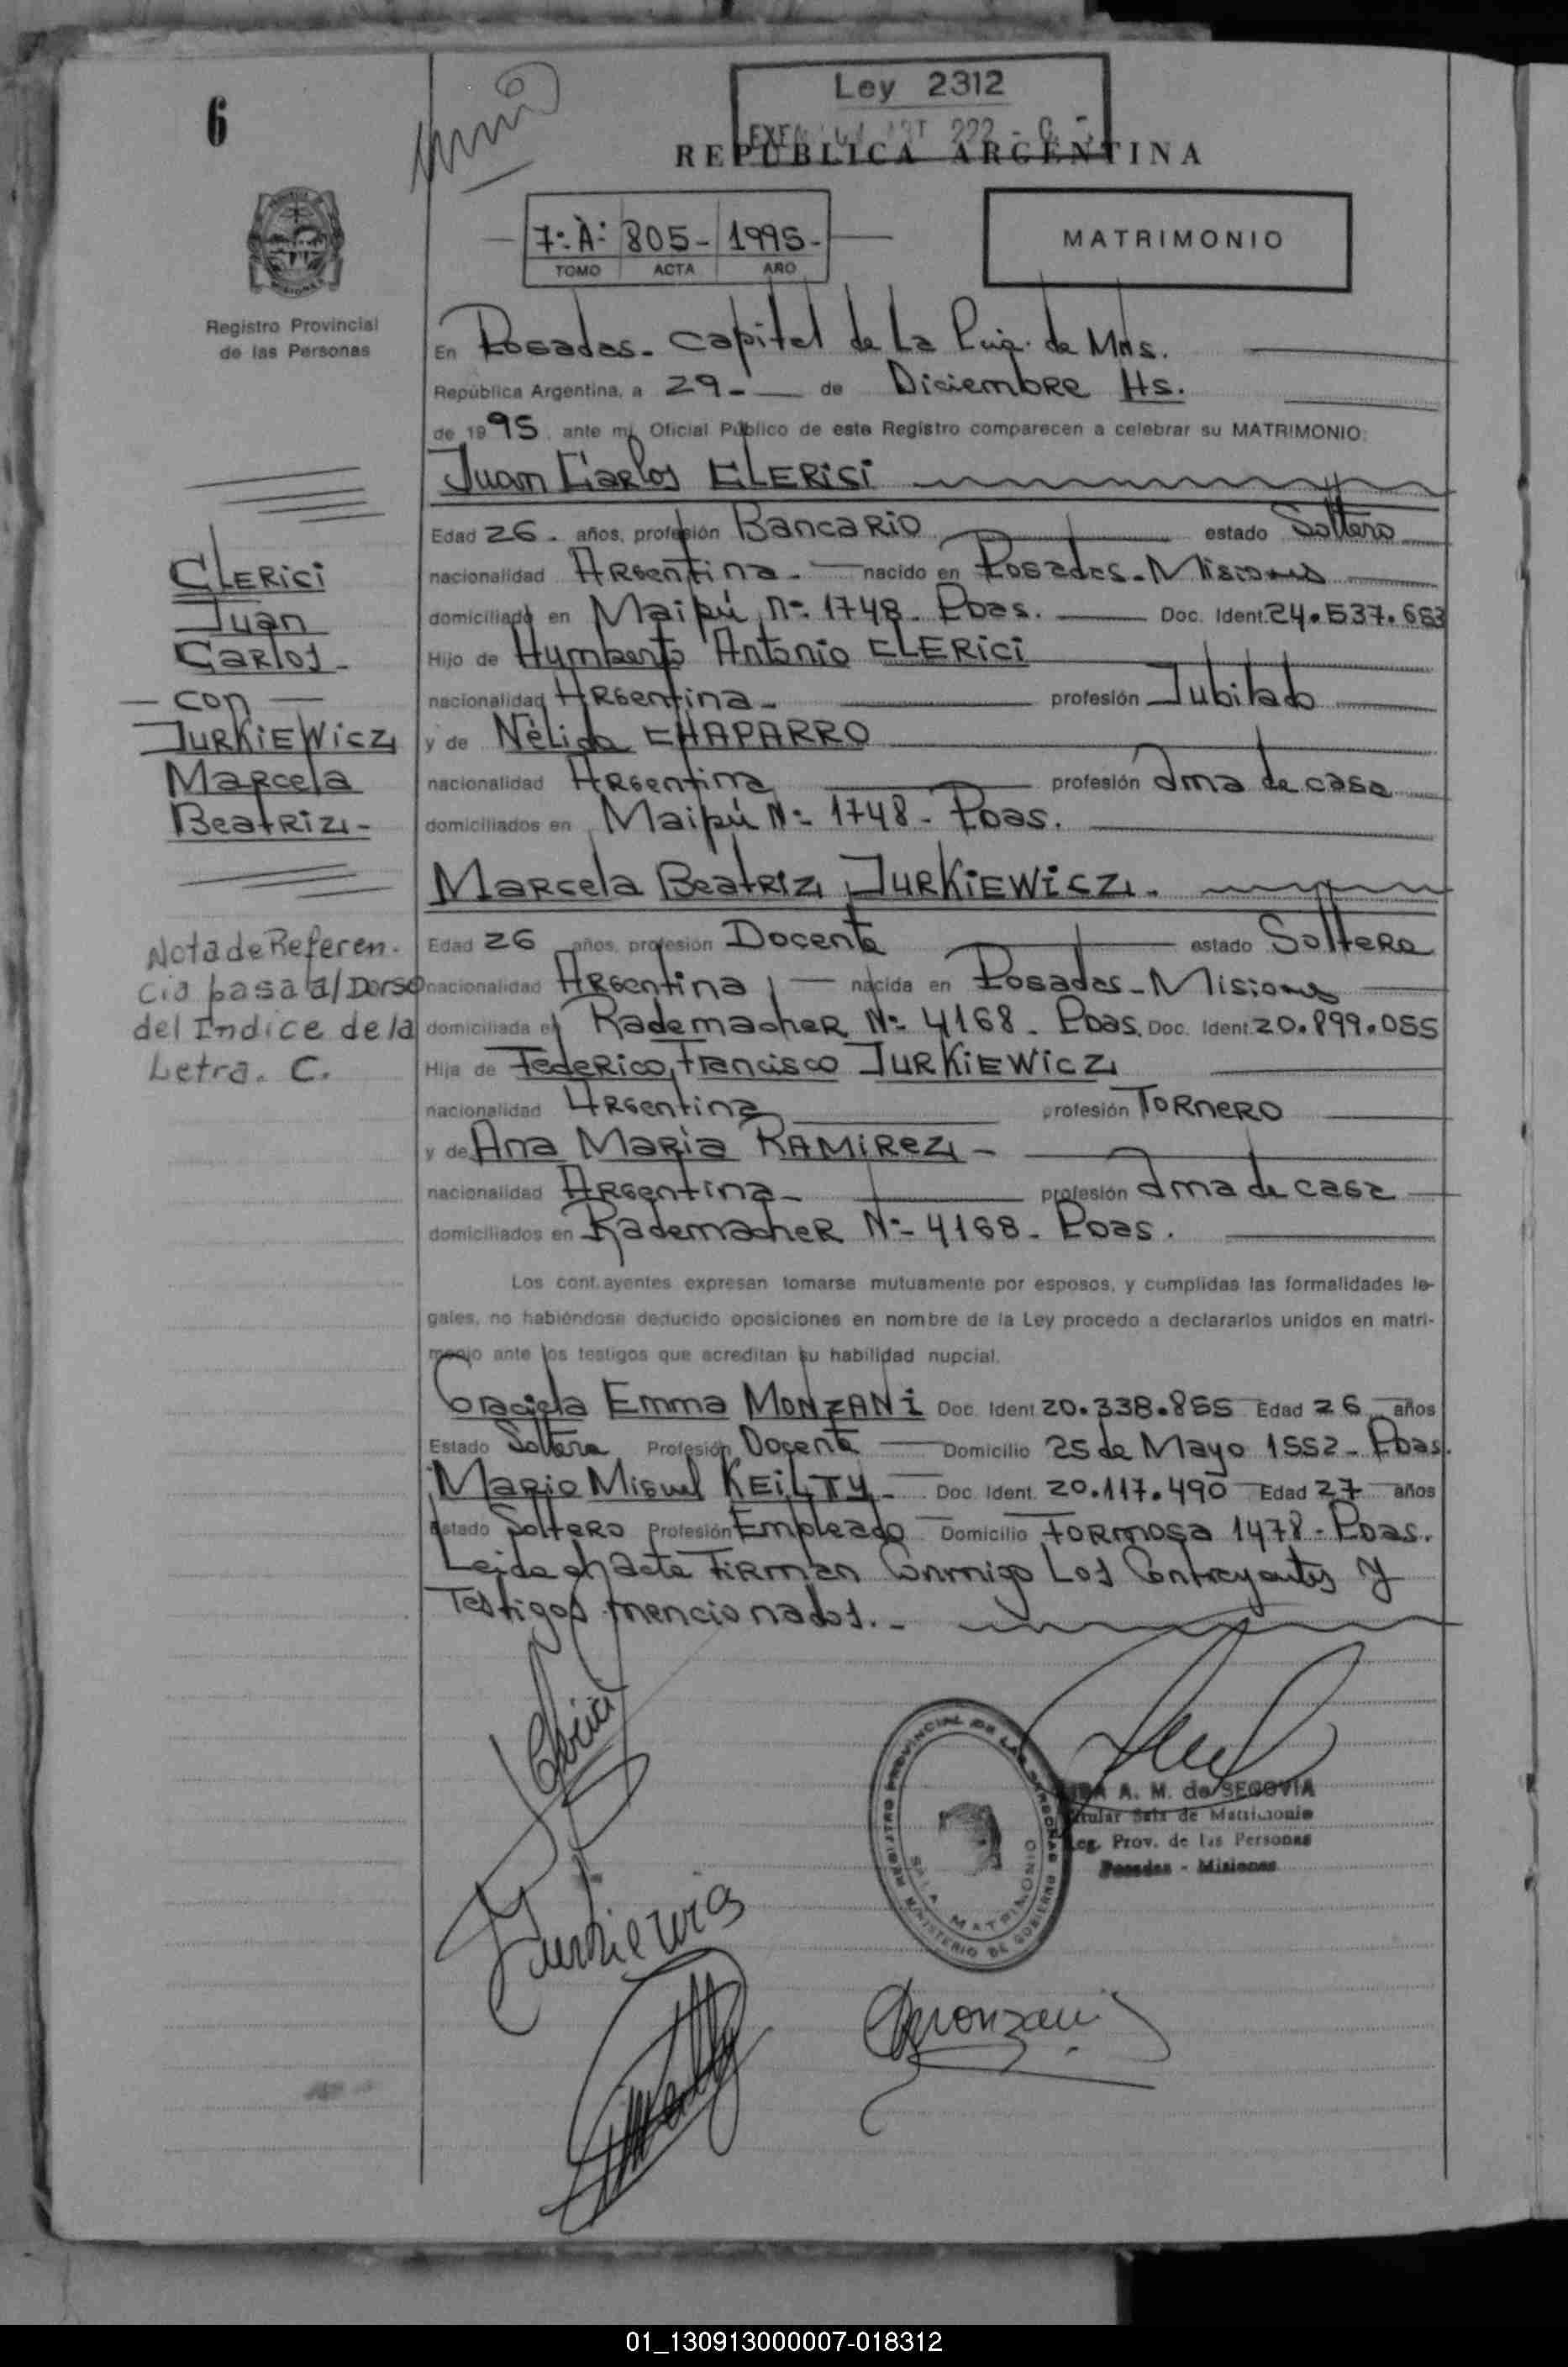 6
Ley 2312
REPUBLICA ARGENTINA
7:A: 805- 1995-
TOMO ACTA AÑO
MATRIMONIO
Registro Provincial
de las Personas
En Posadas- Capital de La de Mns.
República Argentina, a 29- de Diciembre Hs.
de 1995 ante mí, Oficial Público de este Registro comparecen a celebrar su MATRIMONIO:
Juan Carlos CLERISI
Edad 26- años, profesión Bancario estado Soltero
nacionalidad Argentina- nacido en Posadas-Misiones
domiciliado en Maipú N:- 1748- Pdas. Doc. Ident. 24.537.653
Hijo de Humberto Antonio CLERICI
nacionalidad Argentina- profesión Jubilado
y de Nélida CHAPARRO
nacionalidad Argentina profesión Ama de casa
domiciliados en Maipú N:- 1748- Pdas.
Marcela Beatriz JURKIEWICZ-
Edad 26 años, profesión Docente estado Soltera
nacionalidad Argentina, nacida en Posadas-Misiones
domiciliada en Rademacher N:- 4168- Pdas. Doc. Ident. 20.899.055
Hija de Federico Francisco JURKIEWICZ
nacionalidad Argentina profesión Tornero
y de Ana Maria RAMIREZ-
nacionalidad Argentina- profesión Ama de casa
domiciliados en Rademacher N:- 4168- Pdas.
Los contrayentes expresan tomarse mutuamente por esposos, y cumplidas las formalidades le-
gales, no habiéndose deducido oposiciones en nombre de la Ley procedo a declararlos unidos en matri-
monio ante los testigos que acreditan su habilidad nupcial.
Graciela Emma MONZANI Doc. Ident. 20.338.855 Edad 26 años
Estado Soltera Profesión Docente Domicilio 25 de Mayo 1552- Pdas.
Mario Miguel KEILTY- Doc. Ident. 20.117.490 Edad 27 años
Estado Soltero Profesión Empleado Domicilio Formosa 1478- Pdas.
Leida el Acta Firman Conmigo Los Contrayentes Y
Testigos mencionados.-
CLERICI
Juan
Carlos-
- con -
JURKIEWICZ
Marcela
Beatriz-
Nota de Referen-
cia pasa al Dorso
del Indice de la
Letra. C.
Clerici
Jurkiewicz
Monzani
REGISTRO PROVINCIAL DE LAS PERSONAS
MINISTERIO DE GOBIERNO
SALA MATRIMONIO
A. M. de SEGOVIA
Titular Sala de Matrimonio
Reg. Prov. de las Personas
Posadas - Misiones
01_130913000007-018312